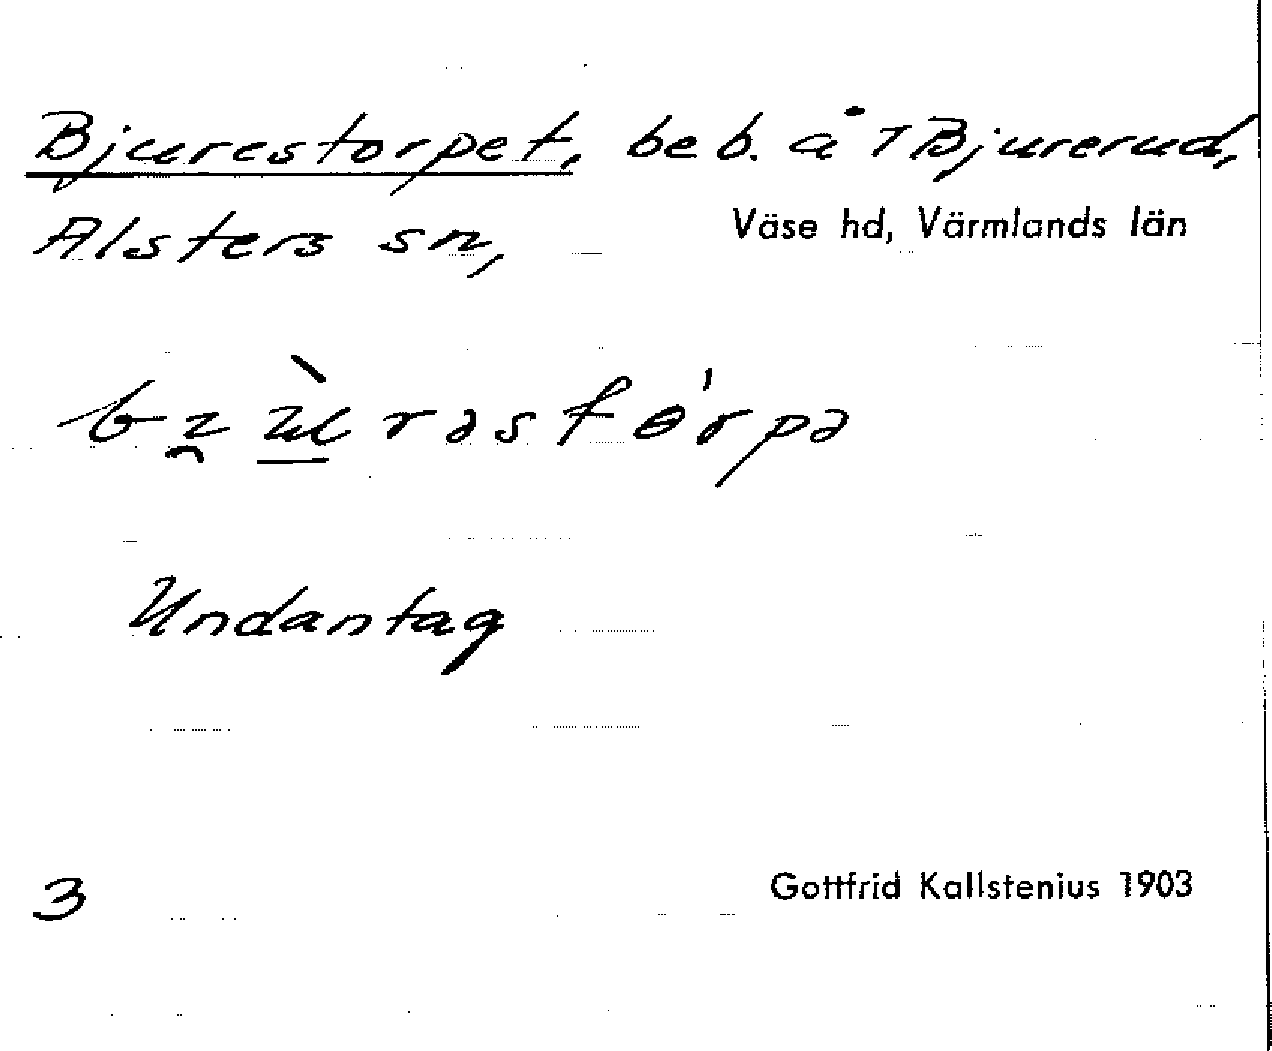 Bjurestorpet, beb. å 1 Bjurerud,
Alsters sn, Väse hd, Värmlands län
Undantag
3 Gottfrid Kallstenius 1903